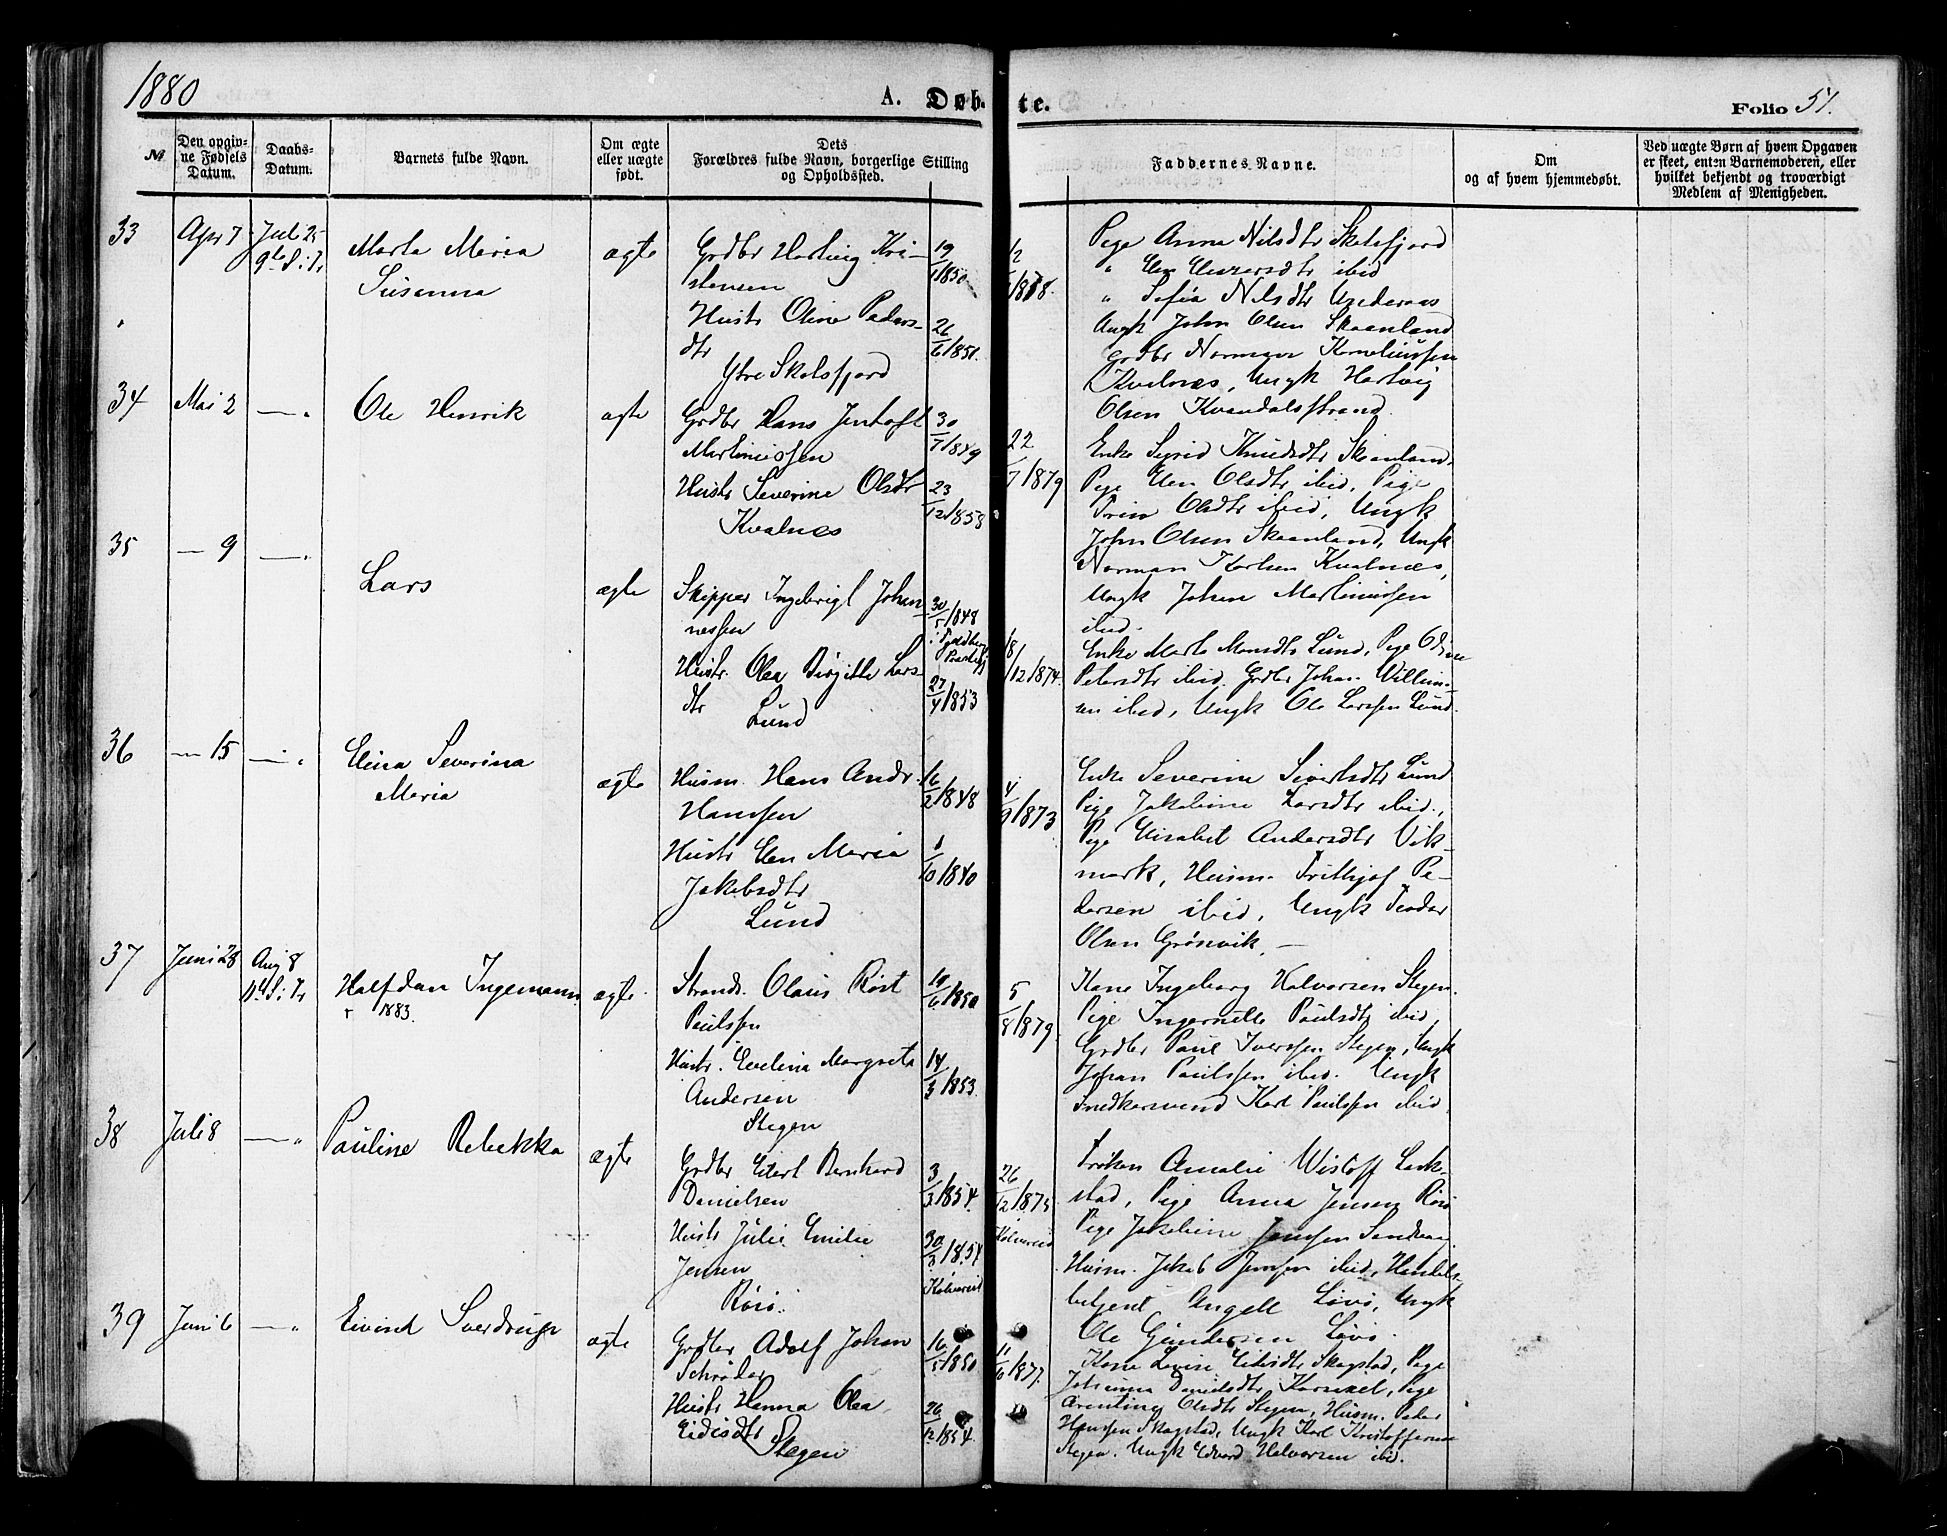 1880
A. Døbte.
Folio 51.
№
Den opgivne Fødsels Datum.
Daabs-Datum.
Barnets fulde Navn.
Om ægte eller uægte født.
Dets Forældres fulde Navn, borgerlige Stilling og Opholdssted.
Faddernes Navne.
Om og af hvem hjemmedøbt.
Ved uægte Børn af hvem Opgaven er skeet, enten Barnemoderen, eller hvilket bekjendt og troværdigt Medlem af Menigheden.
33
Apr 7
Jul 25
9de S. i. Tr
Marta Maria
Susanna
ægte
Grdbr Hartvig Kri-
stensen
19/1 1850
Hustr Oline Peders-
dtr
26/6 1851.
Ytre Skotsfjord
Pige Anna Nilsdtr Skotsfjord
" Elen ibid
" Sofia Nilsdtr
Ungk John Olsen Skaanland
Grdbr Norman Korneliussen
Kvalnes, Ungk Hartvig
Olsen Kvandalsstrand.
34
Mai 2
— "
Ole Henrik
ægte
Grdbr Hans Jentoft
Martinussen
30/7 1849
Hustr Severine Olsdtr
23/12 1858
Kvalnes
22/7 1879
Enke Sigrid Knudsdtr Skaanland,
Pige Elen Olsdtr ibid, Pige
Trine Olsdtr ibid, Ungk
John Olsen Skaanland, Ungk
Norman Karlsen Kvalnes,
Ungk Johan Martinussen
ibid.
35
— 9
— "
Lars
ægte
Skipper Ingebrigt Johan-
nessen
30/5 1848
Hustr. Olea Birgitte Lars-
dtr
27/4 1853
Lund
18/12 1874.
Enke Marta Monsdtr Lund, Pige
Petersdtr ibid. Grdbr Johan Willum-
sen ibid, Ungk Ole Larssen Lund.
36
— 15
— "
Elina Severina
Maria
ægte
Husm. Hans Andr.
Hanssen
16/2 1848
Hustr Elen Maria
Jakobsdtr
1/10 1840
Lund
4/9 1873
Enke Severine Sivertsdtr Lund
Pige Jakobine Larsdtr ibid.,
Pige Elisabet Andersdtr Vik-
mark, Husm. Frithjof Pe-
dersen ibid, Ungk Teodor
Olsen Grønvik, —
37
Juni 28
Aug 8
11te S. i. Tr
Halfdan Ingemann
r 1883.
ægte
Strands. Olaus Røst
Paulssen
10/6 1850
Hustr. Evelina Margrete
Andersen
14/3 1853.
Stegen
5/8 1879.
Kone Ingeborg Halvorsen Stegen.
Pige Ingernelle Paulsdtr ibid,
Grdbr Paul Iverssen Stegen, Ungk
Johan Paulssen ibid. Ungk
Snedkersvend Karl Paulssen ibid.
38
Juli 8
— "
Pauline Rebekka
ægte
Grdbr Eilert Bernhard
Danielsen
3/3 1854.
Hustr Julie Emilie
Jensen
30/3 1854
i Kolvereid
Røsø.
26/12 1875
Kolvereid
Frøken Amalie Wisloff Leck-
stad, Pige Anna Jensen Røsø
Pige Jakobine Jenssen
Husm. Jakob Jenssen ibid, Handels-
betjent Angell Løvø, Ungk
Ole Gundersen Løvø.
39
Juni 6
— "
Eivind Sverdrup
ægte
Grdbr Adolf Johan
Schrøder
16/5 1850
Hustr Hanna Olea
Eidisdtr
26/12 1854.
Stegen
11/6 1877.
Kone Lovise Eidisdtr Skagstad, Pige
Johanna Danielsdtr, Pige
Arentine Olsdtr Stegen, Husm. Peder
Hanssen Skagstad, Ungk Karl Kristoffersen
Stegen. Ungk Edvard Halvorsen ibid.